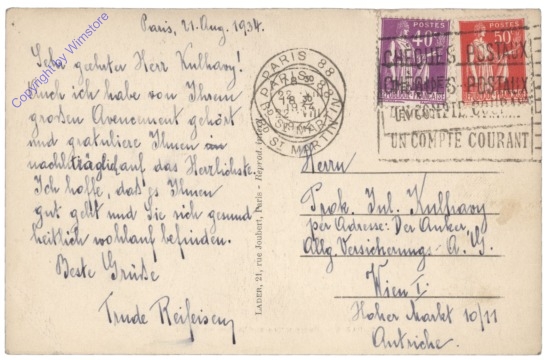 Copyright by Wimstore
Paris, 21. Aug. 1934.
Sehr geehrter Herr Kulhavy!
Auch ich habe von Ihrem
großen Avencement gehört
und gratuliere Ihnen
nachträglich auf das Herzlichste.
Ich hoffe, daß es Ihnen
gut geht und Sie sich gesund
heitlich wohlauf befinden.
Beste Grüße
Trude
LADER, 21, rue Joubert, Paris - Reprod.
PARIS 88
BD ST MARTIN
POSTES
40c
POSTES
50c
CHEQUES POSTAUX
UN COMPTE COURANT
Herrn
Prok. Jul. Kulhavy
per Adresse: Der Anker,
Allg. Versicherungs-A. G.
Wien I.
Hoher Markt 10/11
Autriche.